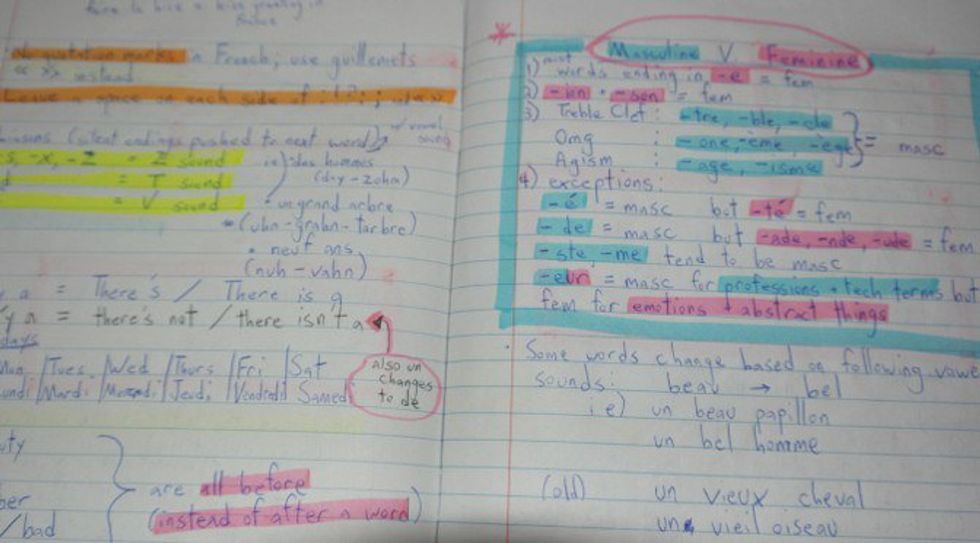 No quotation marks in French; use guillemets
« x » instead
Leave a space on each side of
(silent endings pushed to next word)
s, -x, -z = Z sound ie) des hommes
(day-zohm)
d = T sound
= V sound • un grand arbre
(uhn-grahn-tarbre)
• neuf ans
(nuh-vahn)
y a = There's / There is a
y a = there's not / there isn't a
days
Mon |Tues. |Wed |Thurs |Fri |Sat
undi |Mardi |Jeudi |Vendredi Samedi
also un
changes
to de
uty
ber
/bad
are all before
(instead of after a word)
Masculine V. Feminine
1) most words ending in -e = fem
2) -ion + -son = fem
3) Treble Clef: -tre, -ble, -cle
Omg : -one, -ème, -ège = masc
Agism : -age, -isme
4) exceptions:
-é = masc but -té = fem
-de = masc but -ade, -nde, -ude = fem
-ste, -me tend to be masc
-eur = masc for professions + tech terms but
fem for emotions + abstract things
• Some words change based on following vowe
sounds: beau → bel
ie) un beau papillon
un bel homme
(old) un vieux cheval
un vieil oiseau